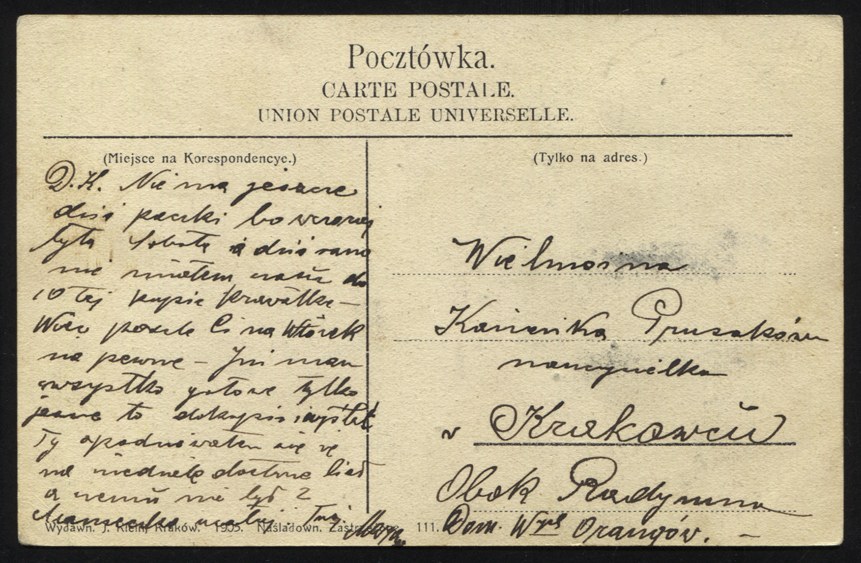 Pocztówka.
CARTE POSTALE.
UNION POSTALE UNIVERSELLE.
(Miejsce na Korespondencye.)
(Tylko na adres.)
D. K. Nie ma jeszcze
dziś paczki bo wczoraj
była Sobota a dziś rano
nie miałem czasu do
10 tej kupić Krawatkę –
Więc poszlę Ci na Wtorek
na pewne – Już mam
wszystko gotowe tylko
jeszcze to dokupić i wysłać
Ty spodziewałem się że
na niedzielę dostanę list
a czemu nie był?
Wielmożna
Kazieńka
nauczycielka
w Krakowcu
Obok Radymna
Dom. Orangów. –
Wydawn. J. Klein, Kraków. 1905. Naśladown. Zastrzeżone. 111.